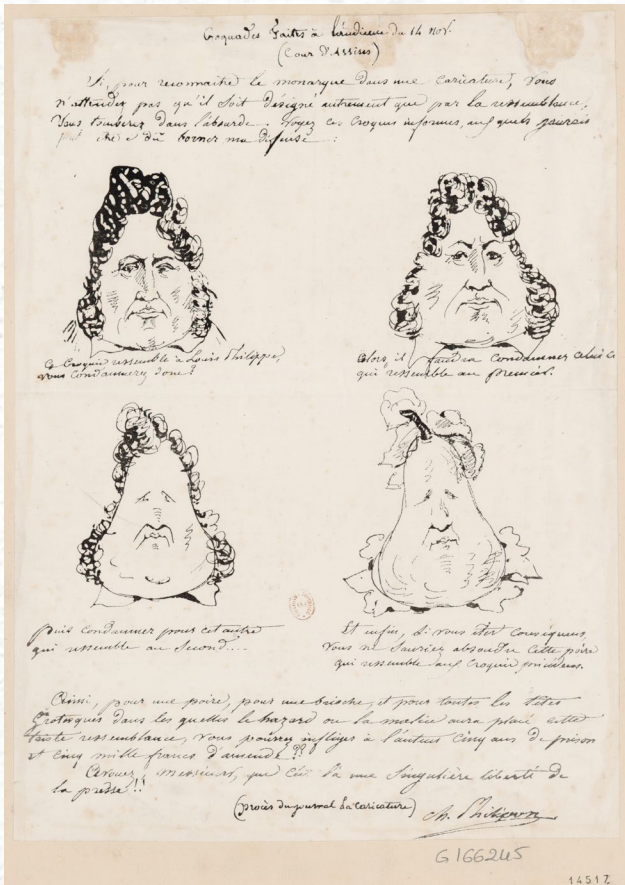 Croquades faites à l'audience du 14 nov.
(Cour d'Assises)
Si, pour reconnaitre le monarque dans une caricature, vous
n'attendez pas qu'il soit désigné autrement que par la ressemblance,
vous tomberez dans l'absurde. Voyez ces croquis informes, auxquels j'aurais
peut être dû borner ma défense :
Ce croquis ressemble à Louis Philippe,
vous condamnerez donc ?
Alors il faudra condamner celui ci
qui ressemble au premier.
Puis condamner pour cet autre
qui ressemble au second....
Et enfin, si vous êtes conséquens,
vous ne sauriez absoudre cette poire
qui ressemble aux croquis précédens.
Ainsi, pour une poire, pour une brioche, et pour toutes les têtes
grotesques dans lesquelles le hazard ou la malice aura placé cette
triste ressemblance, vous pourrez infliger à l'auteur cinq ans de prison
et cinq mille francs d'amende ??!
Avouez, Messieurs, que c'est là une singulière liberté de
la presse !!
(procès du journal La Caricature)
Ch. Philipon
G 166245
14517